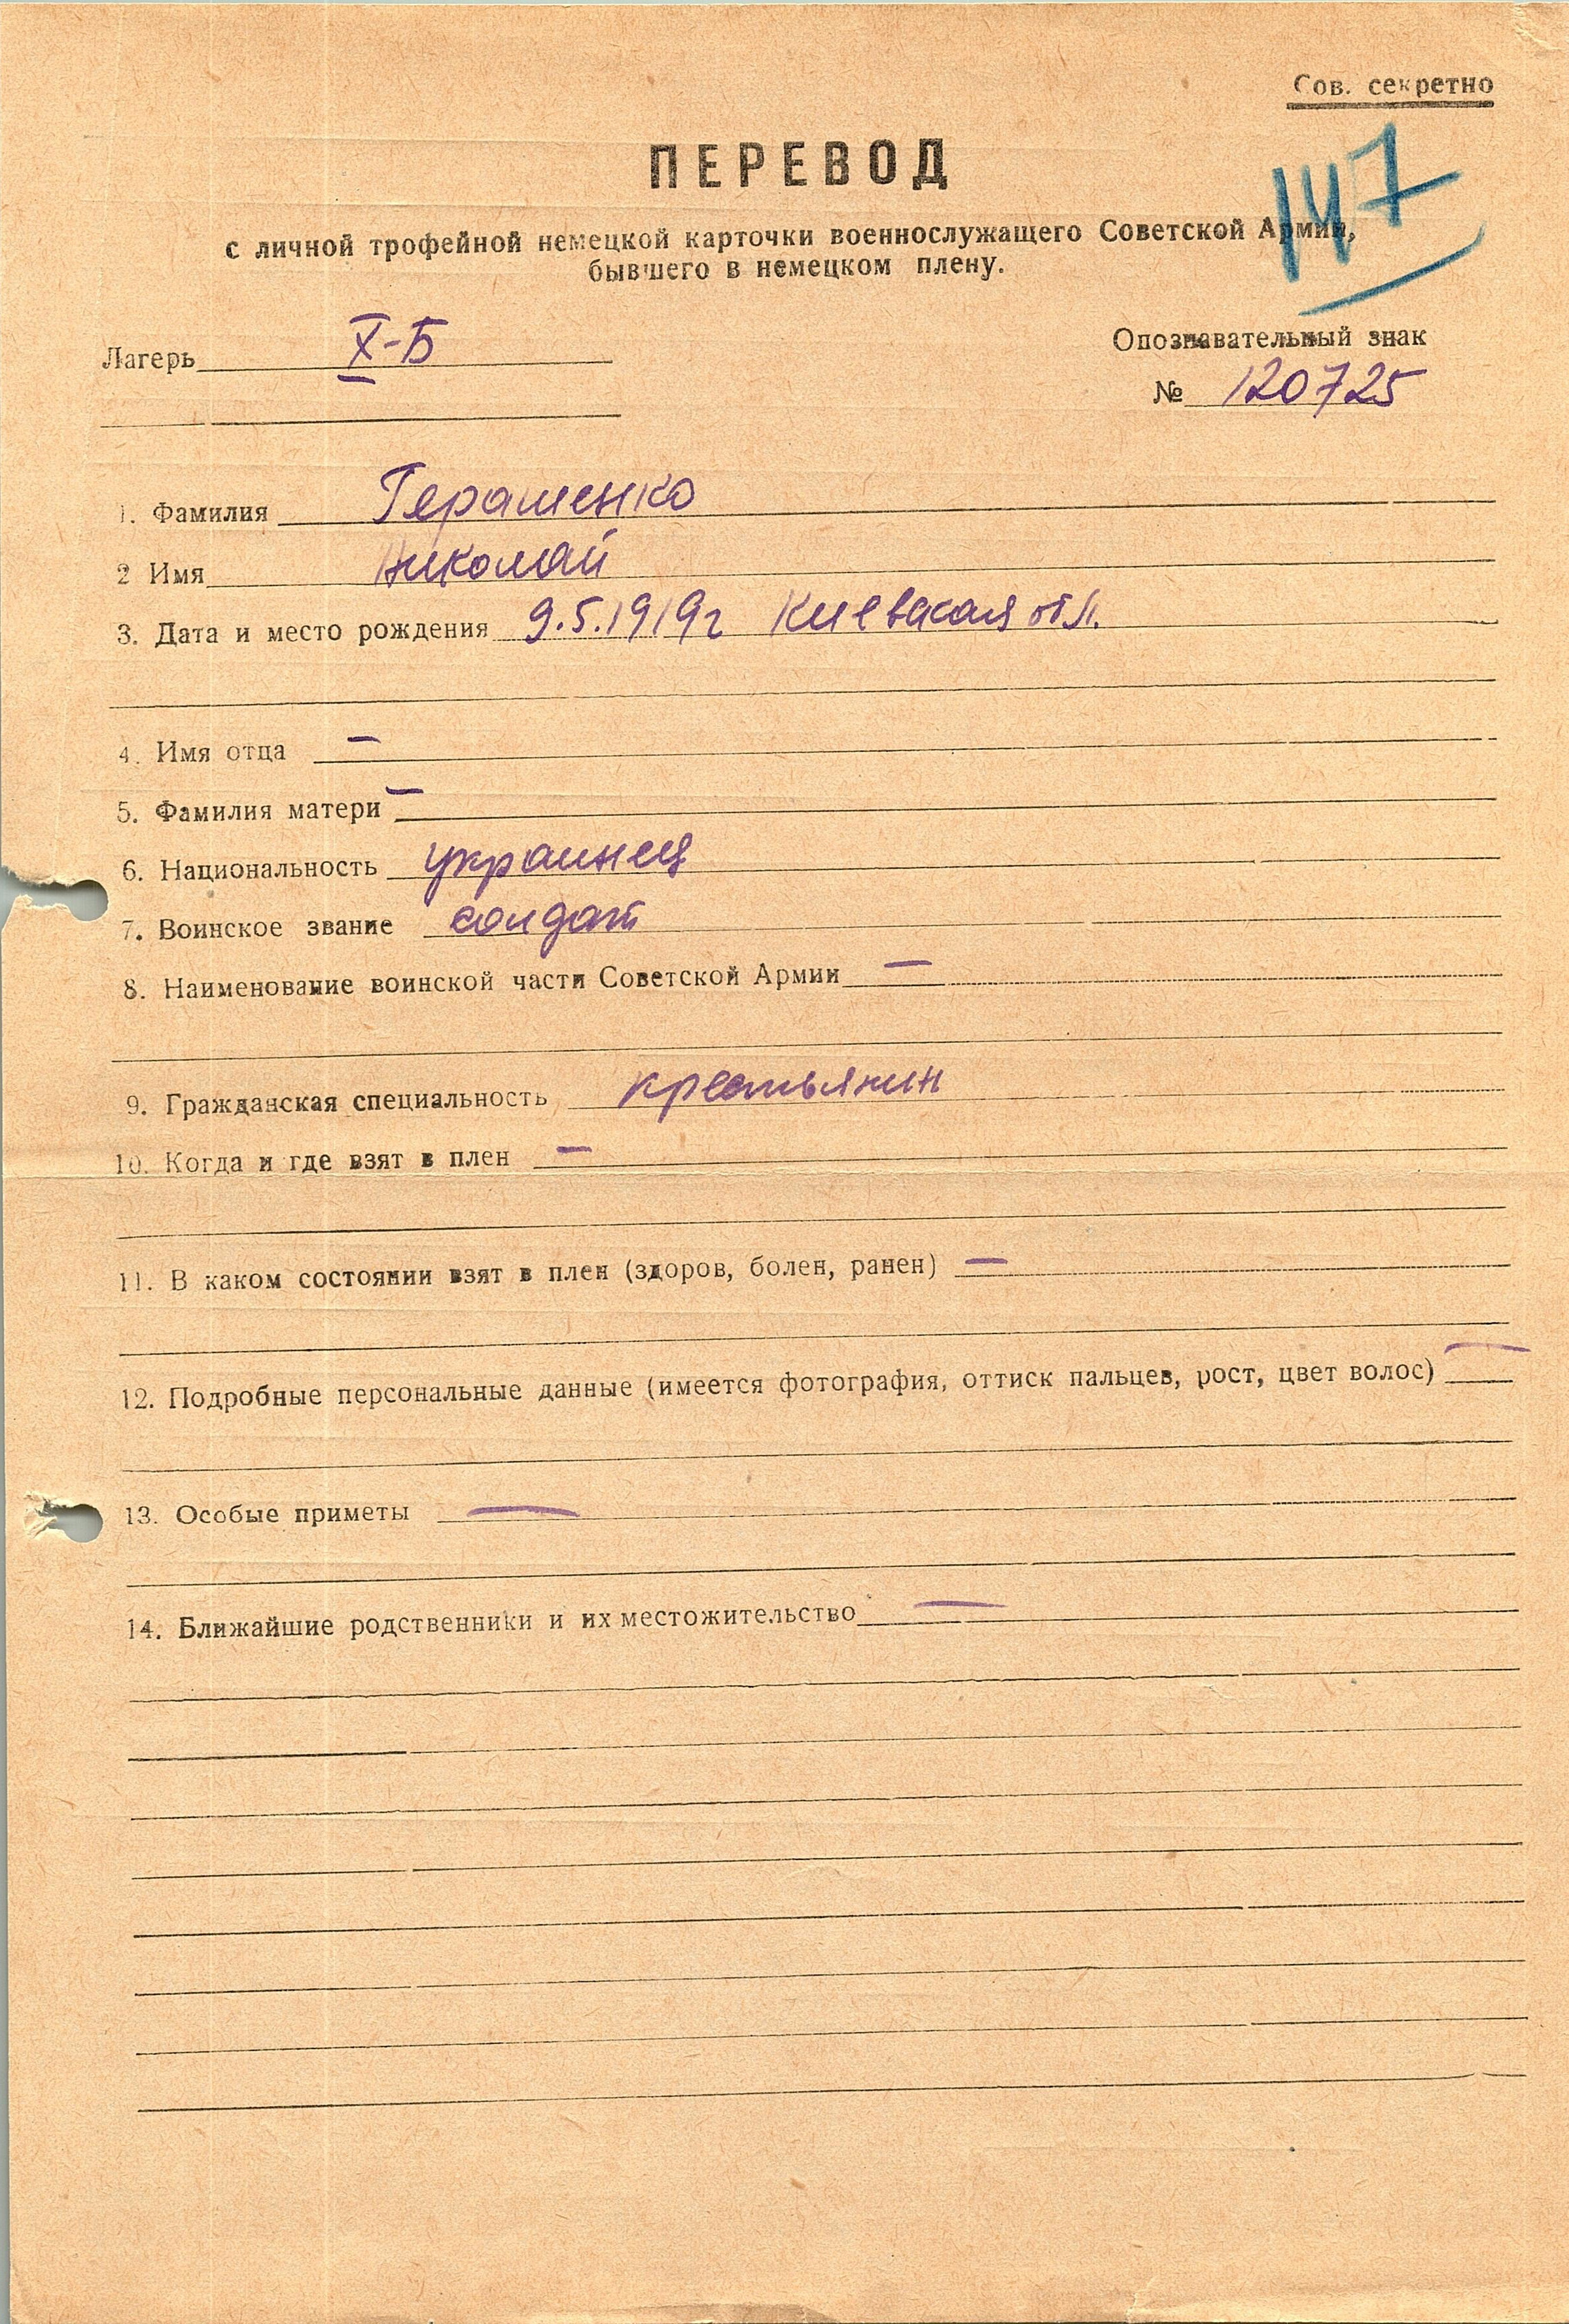 Сов. секретно
ПЕРЕВОД
147
с личной трофейной немецкой карточки военнослужащего Советской Армии,
бывшего в немецком плену.
Лагерь X-Б
Опознавательный знак
№ 120725
1. Фамилия Герашенко
2 Имя Николай
3. Дата и место рождения 9.5.1919г Киевская обл.
4. Имя отца –
5. Фамилия матери –
6. Национальность украинец
7. Воинское звание солдат
8. Наименование воинской части Советской Армии –
9. Гражданская специальность крестьянин
10. Когда и где взят в плен –
11. В каком состоянии взят в плен (здоров, болен, ранен) –
12. Подробные персональные данные (имеется фотография, оттиск пальцев, рост, цвет волос) –
13. Особые приметы –
14. Ближайшие родственники и их местожительство –